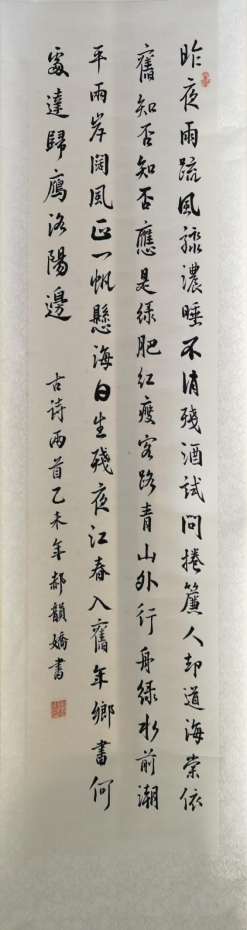 昨夜雨疏风骤濃睡不消殘酒試问捲簾人却道海棠依
舊知否知否應是绿肥红瘦客路青山外行舟绿水前潮
平兩岸闊風正一帆懸海日生殘夜江春入舊年鄉書何
處達歸鴈洛陽邊
古诗兩首乙未年郝韻嬌書